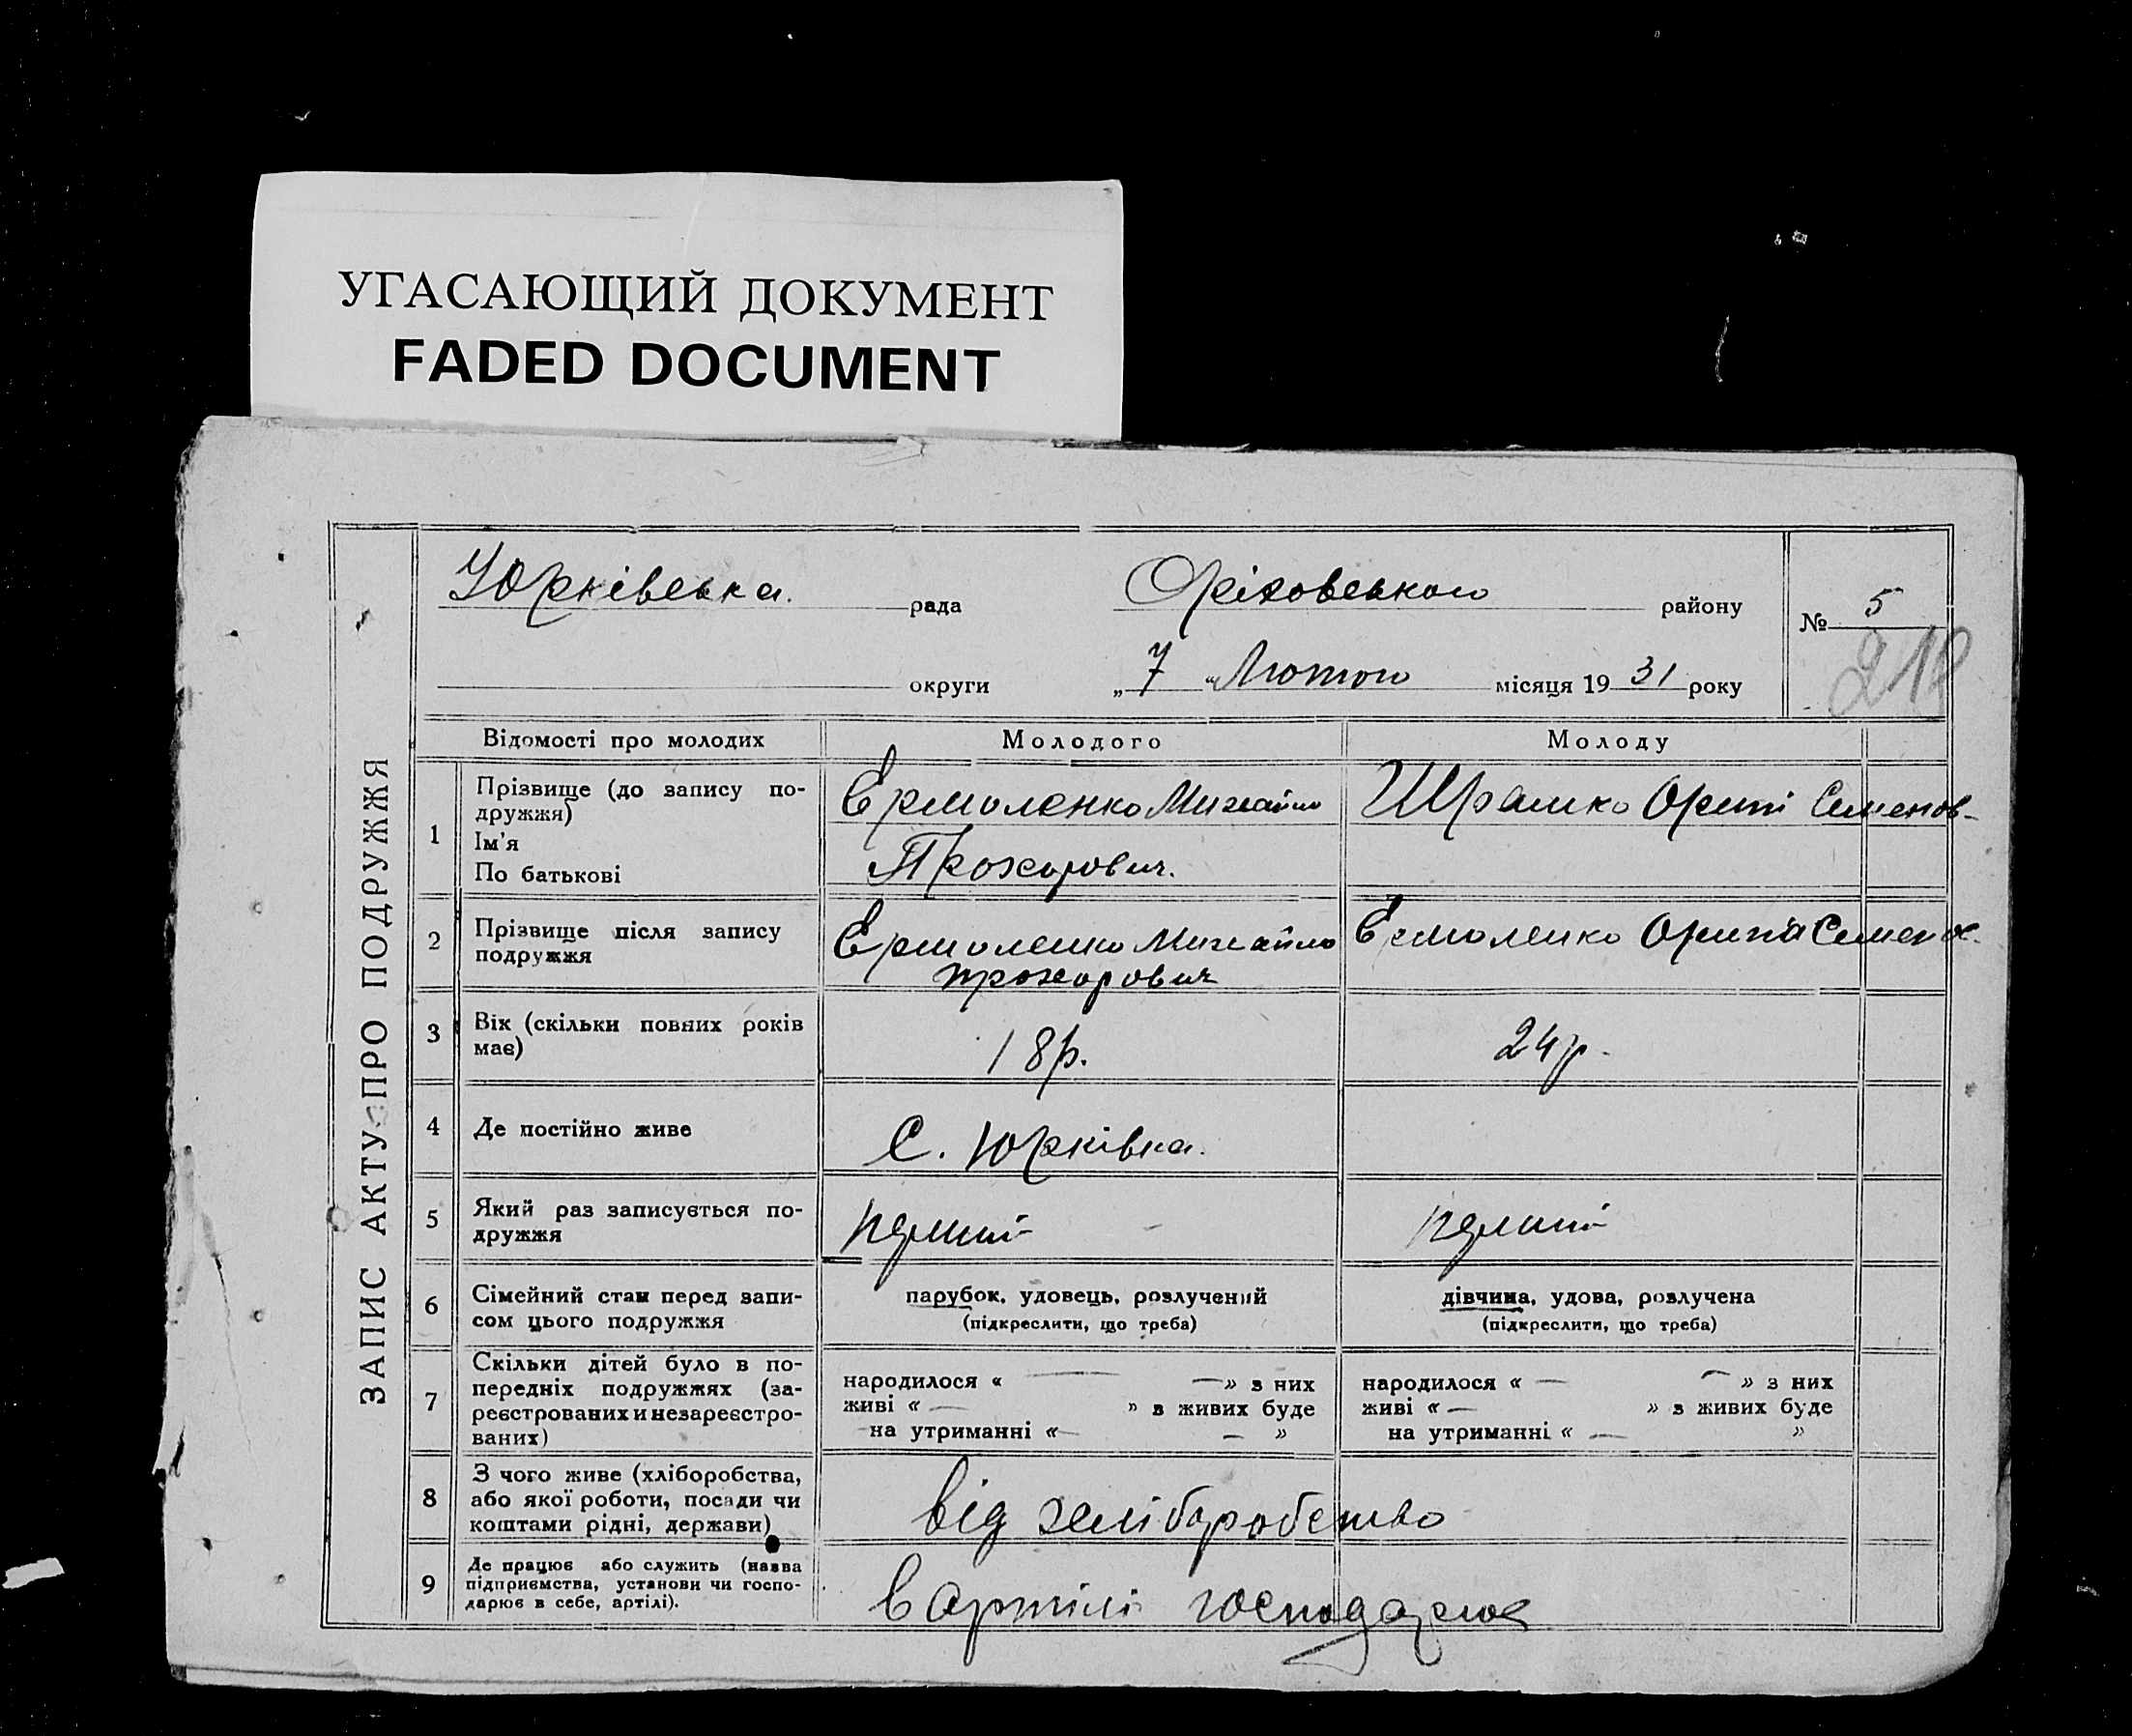 УГАСАЮЩИЙ ДОКУМЕНТ
FADED DOCUMENT
ЗАПИС АКТУ ПРО ПОДРУЖЖЯ
Юрківська рада
Оріховського району
№ 5
округи
„ 7 “ Лютого місяця 19 31 року
Відомості про молодих
Молодого
Молоду
1
Прізвище (до запису по-
дружжя)
Ім'я
По батькові
Єрмоленко Михайло
Прохорович.
Шрамко Семенов-
2
Прізвище після запису
подружжя
Єрмоленко Михайло
Прохорович
Єрмоленко Орина
3
Вік (скільки повних років
має)
18р.
24р.
4
Де постійно живе
С. Юрківка.
5
Який раз записується по-
дружжя
6
Сімейний стан перед запи-
сом цього подружжя
парубок, удовець, розлучений
(підкреслити, що треба)
дівчина, удова, розлучена
(підкреслити, що треба)
7
Скільки дітей було в по-
передніх подружжях (за-
реєстрованих и незареєстро-
ваних)
народилося « — — » з них
живі « — » з живих буде
на утриманні « — — »
народилося « — — » з них
живі « — » з живих буде
на утриманні « — »
8
З чого живе (хліборобства,
або якої роботи, посади чи
коштами рідні, держави)
від
9
Де працює або служить (назва
підприємства, установи чи госпо-
дарює в себе, артілі).
в артілі господарює